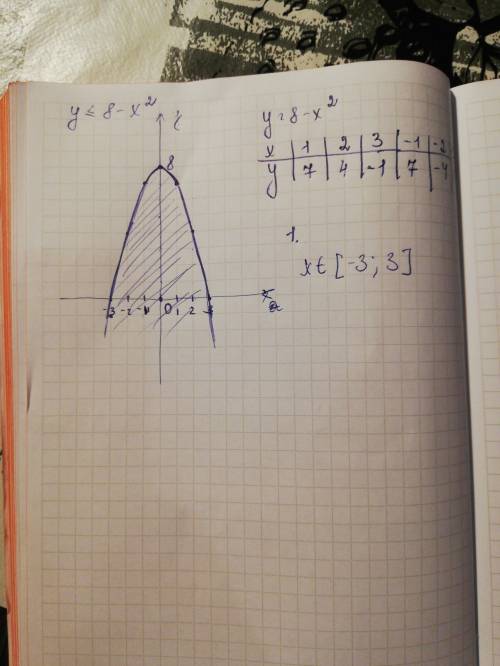 y ≤ 8 - x²
y = 8 - x²
x | 1 | 2 | 3 | -1 | -2
y | 7 | 4 | -1 | 7 | -4
8
-3 -2 -1 0 1 2 3
x
1.
x ∈ [-3; 3]